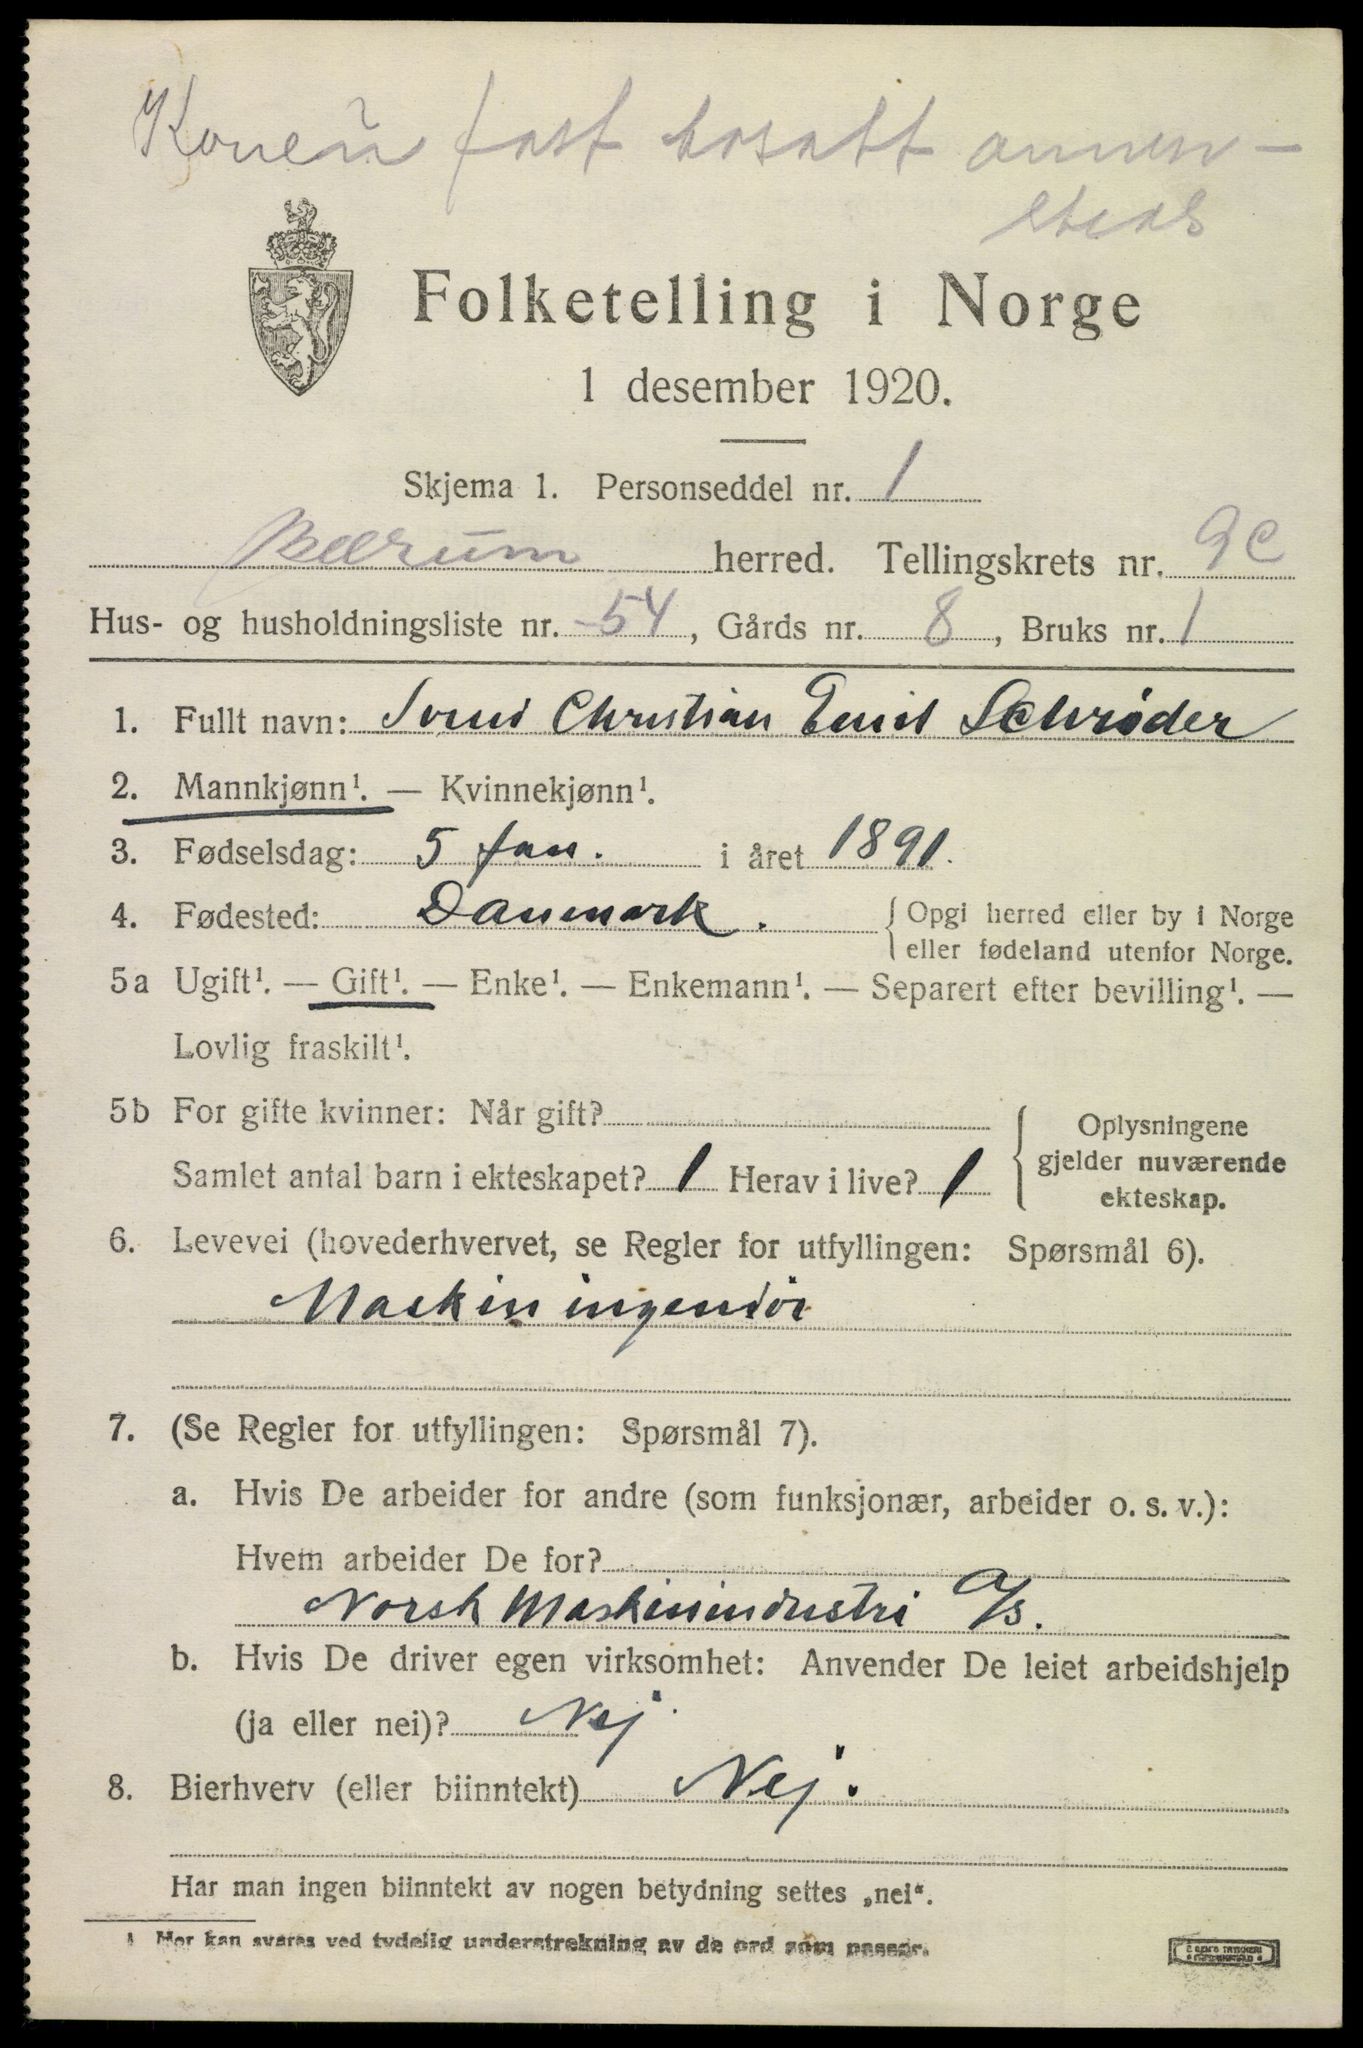 Konen fast bosatt annen-
steds
Folketelling i Norge
1 desember 1920.
Skjema 1. Personseddel nr. 1
Bærum herred. Tellingskrets nr. 9c
Hus- og husholdningsliste nr. 54, Gårds nr. 8, Bruks nr. 1
1. Fullt navn: Svend Christian Emil Schrøder
2. Mannkjønn¹. — Kvinnekjønn¹.
3. Fødselsdag: 5 jan. i året 1891.
4. Fødested: Danmark. { Opgi herred eller by i Norge
eller fødeland utenfor Norge.
5a Ugift¹. — Gift¹. — Enke¹. — Enkemann¹. — Separert efter bevilling¹. —
Lovlig fraskilt¹.
5b For gifte kvinner: Når gift?
Samlet antal barn i ekteskapet? 1 Herav i live? 1
{ Oplysningene
gjelder nuværende
ekteskap.
6. Levevei (hovederhvervet, se Regler for utfyllingen: Spørsmål 6).
Maskiningeniør
7. (Se Regler for utfyllingen: Spørsmål 7).
a. Hvis De arbeider for andre (som funksjonær, arbeider o. s. v.):
Hvem arbeider De for?
Norsk Maskinindustri A/s.
b. Hvis De driver egen virksomhet: Anvender De leiet arbeidshjelp
(ja eller nei)? Nej.
8. Bierhverv (eller biinntekt) Nej.
Har man ingen biinntekt av nogen betydning settes „nei“.
¹ Her kan svares ved tydelig understrekning av de ord som passer.